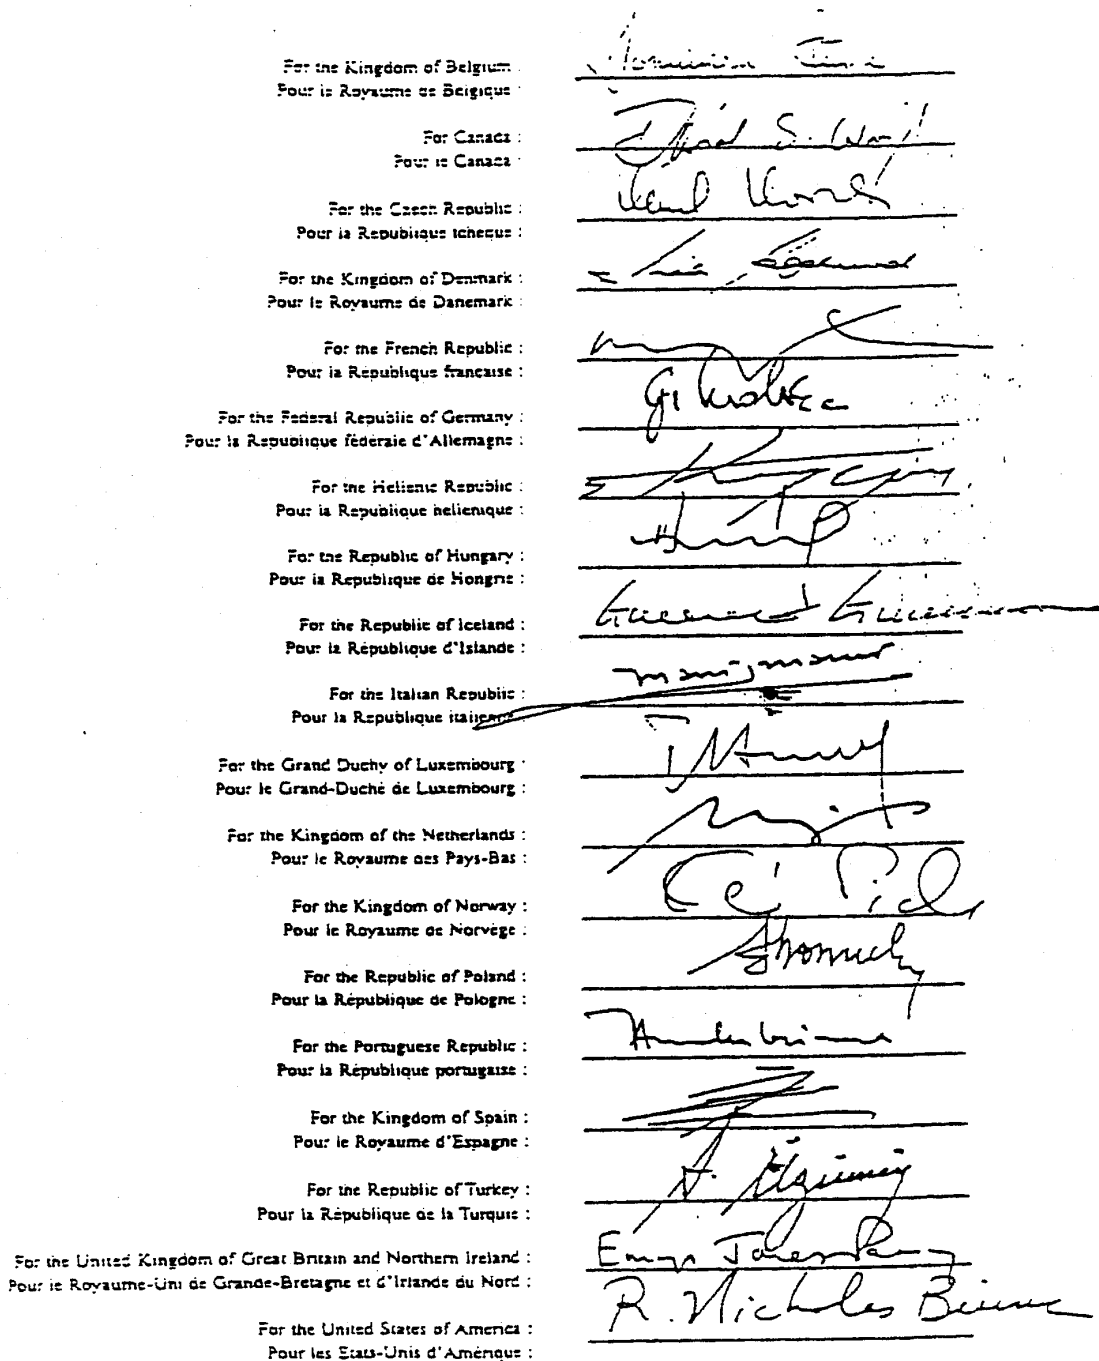 For the Kingdom of Belgium :
Pour le Royaume de Belgique :
For Canada :
David S. Wright
Pour le Canada :
Karel Kovanda
For the Czech Republic :
Pour la République tchèque :
For the Kingdom of Denmark :
Pour le Royaume de Danemark :
For the French Republic :
Pour la République française :
For the Federal Republic of Germany :
Pour la République fédérale d'Allemagne :
For the Hellenic Republic :
Pour la République hellénique :
For the Republic of Hungary :
Pour la République de Hongrie :
For the Republic of Iceland :
Pour la République d'Islande :
For the Italian Republic :
Pour la République italienne :
For the Grand Duchy of Luxembourg :
Pour le Grand-Duché de Luxembourg :
For the Kingdom of the Netherlands :
Pour le Royaume des Pays-Bas :
For the Kingdom of Norway :
Pour le Royaume de Norvège :
For the Republic of Poland :
Pour la République de Pologne :
For the Portuguese Republic :
Pour la République portugaise :
For the Kingdom of Spain :
Pour le Royaume d'Espagne :
For the Republic of Turkey :
Pour la République de la Turquie :
For the United Kingdom of Great Britain and Northern Ireland :
Pour le Royaume-Uni de Grande-Bretagne et d'Irlande du Nord :
R. Nicholas Burns
For the United States of America :
Pour les Etats-Unis d'Amérique :